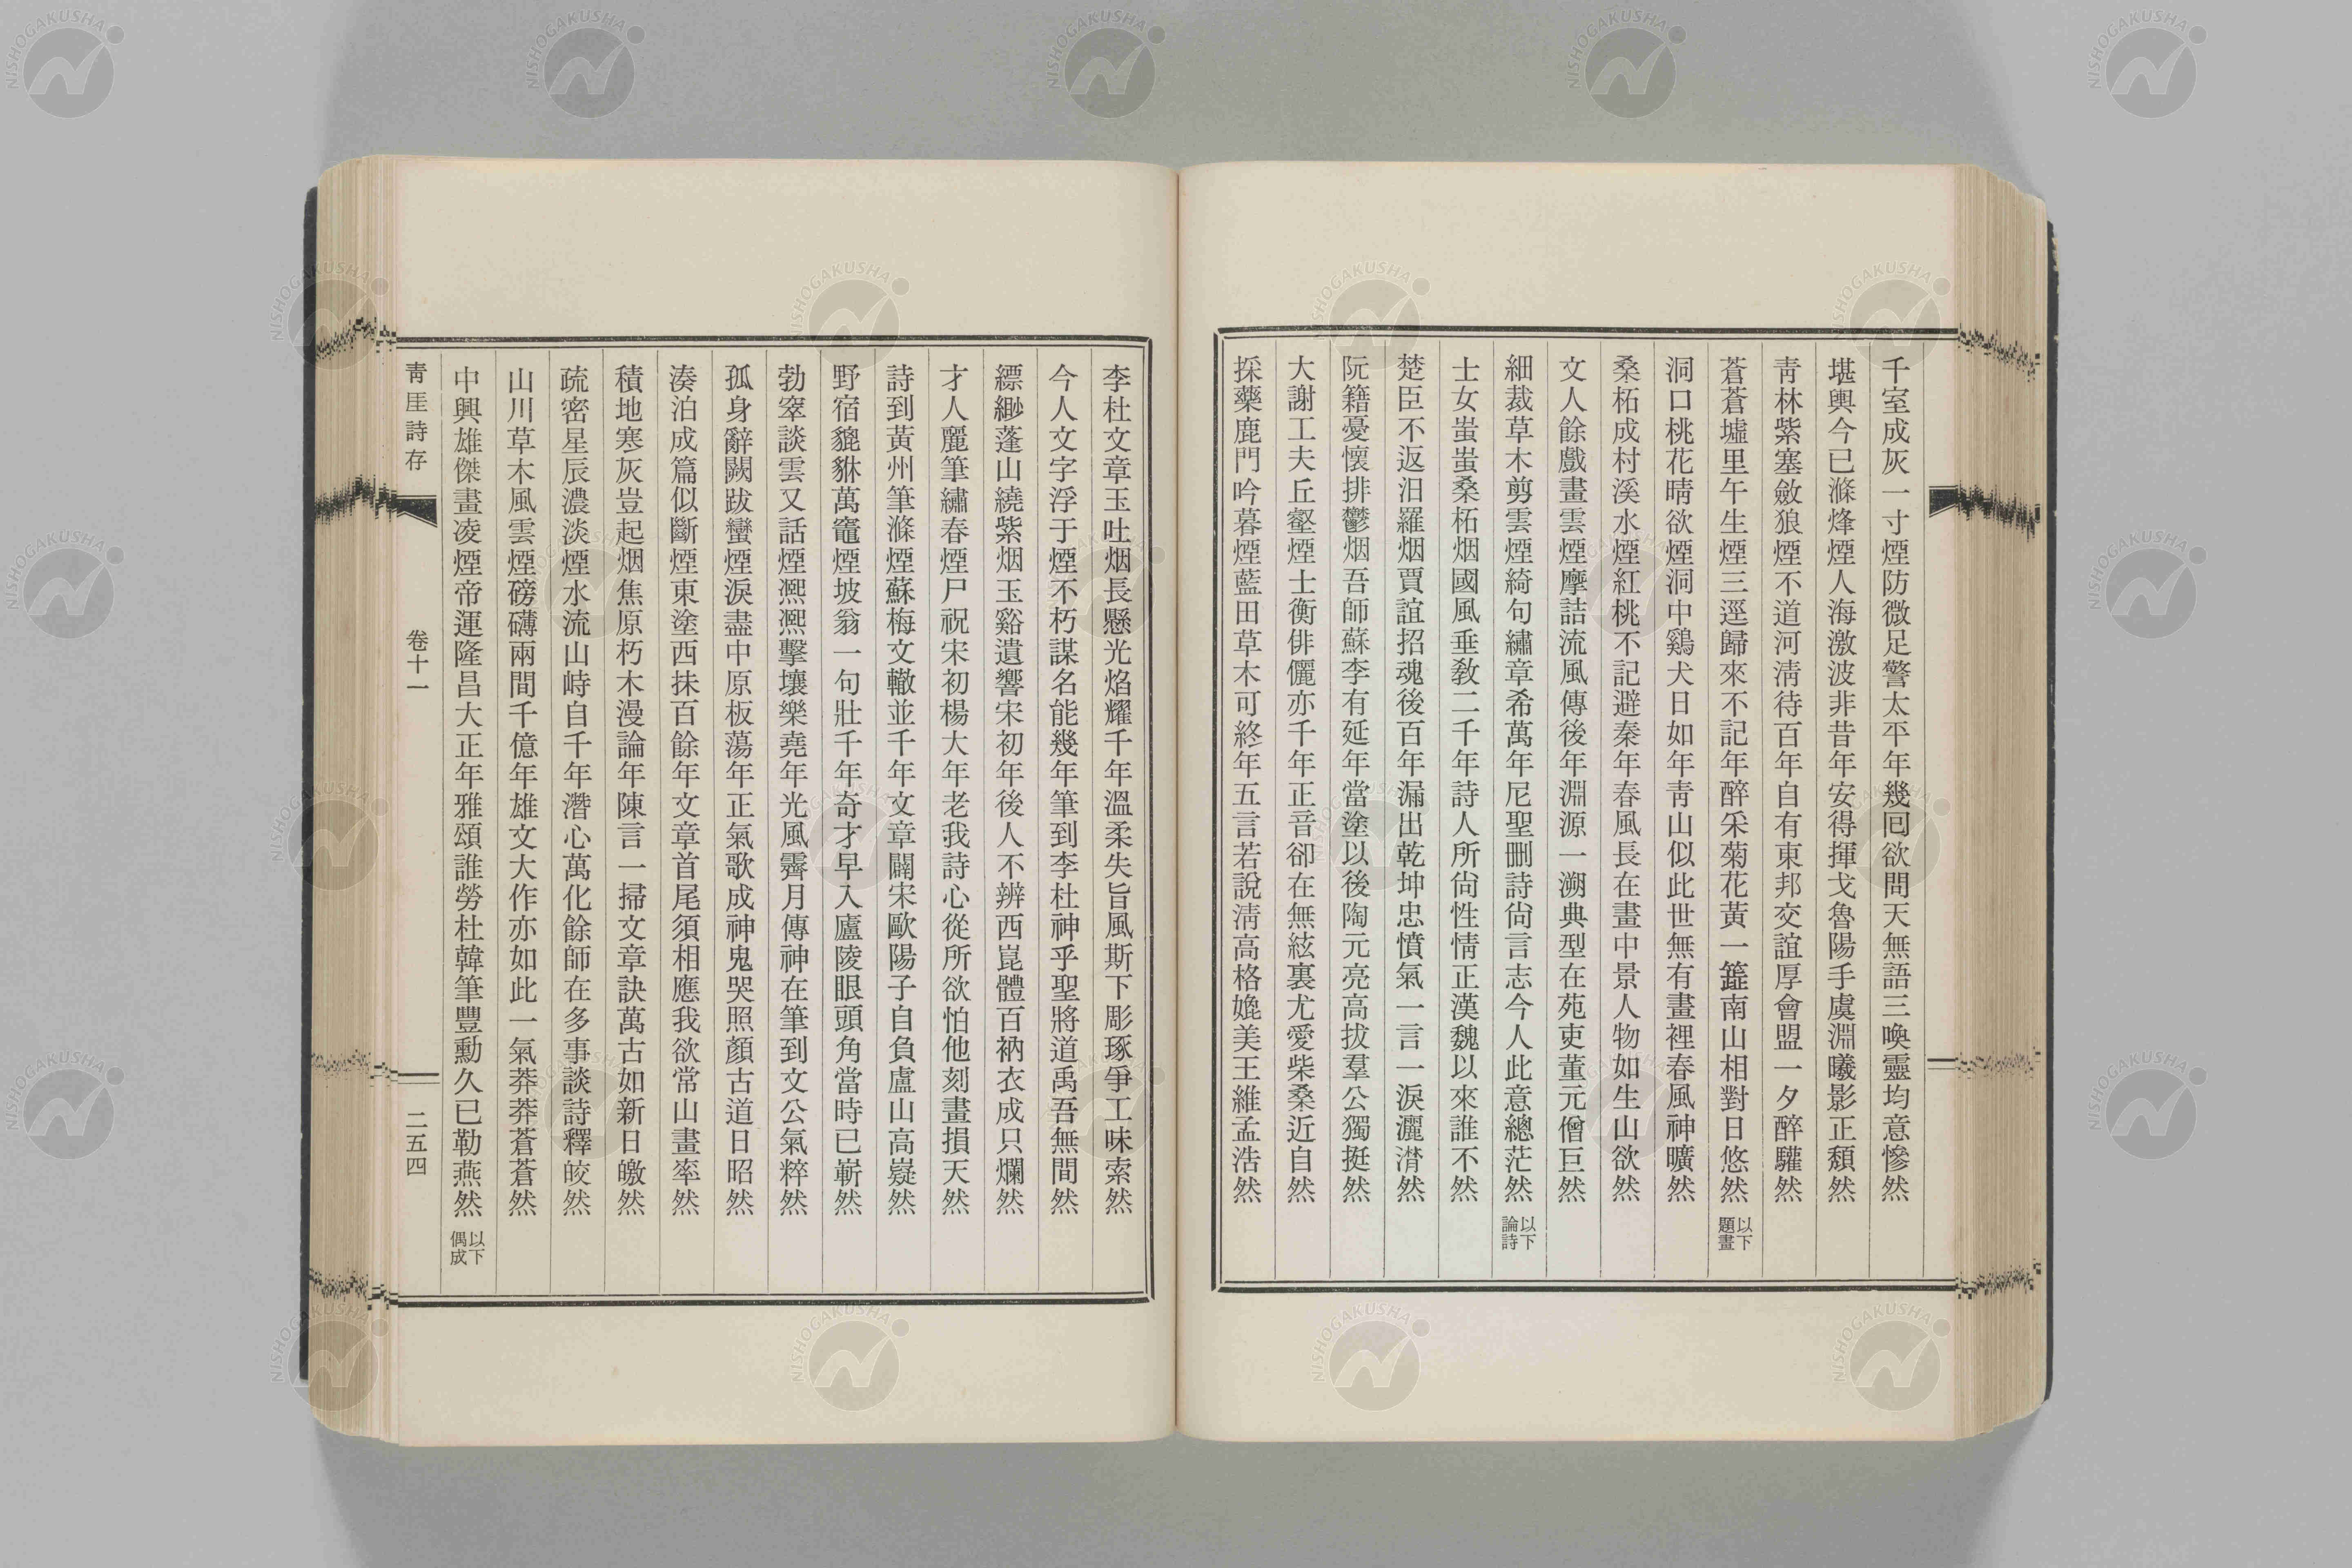 千室成灰一寸煙防微足警太平年幾囘欲問天無語三喚靈均意慘然
堪輿今已滌烽煙人海激波非昔年安得揮戈魯陽手虞淵曦影正頹然
靑林紫塞斂狼煙不道河淸待百年自有東邦交誼厚會盟一夕醉驩然
蒼蒼墟里午生煙三逕歸來不記年醉采菊花黃一籬南山相對日悠然 以下題畫
洞口桃花晴欲煙洞中鷄犬日如年靑山似此世無有畫裡春風神曠然
桑柘成村溪水煙紅桃不記避秦年春風長在畫中景人物如生山欲然
文人餘戲畫雲煙摩詰流風傳後年淵源一溯典型在苑吏董元僧巨然
細裁草木剪雲煙綺句繡章希萬年尼聖刪詩尙言志今人此意總茫然 以下論詩
士女蚩蚩桑柘烟國風垂敎二千年詩人所尙性情正漢魏以來誰不然
楚臣不返汨羅烟賈誼招魂後百年漏出乾坤忠憤氣一言一淚灑潸然
阮籍憂懷排鬱烟吾師蘇李有延年當塗以後陶元亮高拔羣公獨挺然
大謝工夫丘壑煙士衡俳儷亦千年正音卻在無絃裏尤愛柴桑近自然
採藥鹿門吟暮煙藍田草木可終年五言若說淸高格媲美王維孟浩然
李杜文章玉吐烟長懸光焰耀千年溫柔失旨風斯下彫琢爭工味索然
今人文字浮于煙不朽謀名能幾年筆到李杜神乎聖將道禹吾無間然
縹緲蓬山繞紫烟玉谿遺響宋初年後人不辨西崑體百衲衣成只爛然
才人麗筆繡春煙尸祝宋初楊大年老我詩心從所欲怕他刻畫損天然
詩到黃州筆滌煙蘇梅文轍並千年文章闢宋歐陽子自負盧山高嶷然
野宿貔貅萬竈煙坡翁一句壯千年奇才早入廬陵眼頭角當時已嶄然
勃窣談雲又話煙凞凞擊壤樂堯年光風霽月傳神在筆到文公氣粹然
孤身辭闕跋蠻煙淚盡中原板蕩年正氣歌成神鬼哭照顏古道日昭然
湊泊成篇似斷煙東塗西抹百餘年文章首尾須相應我欲常山畫率然
積地寒灰豈起烟焦原朽木漫論年陳言一掃文章訣萬古如新日皦然
疏密星辰濃淡煙水流山峙自千年潛心萬化餘師在多事談詩釋皎然
山川草木風雲煙磅礴兩間千億年雄文大作亦如此一氣莽莽蒼蒼然
中興雄傑畫凌煙帝運隆昌大正年雅頌誰勞杜韓筆豐勳久已勒燕然 以下偶成
靑厓詩存 卷十一 二五四